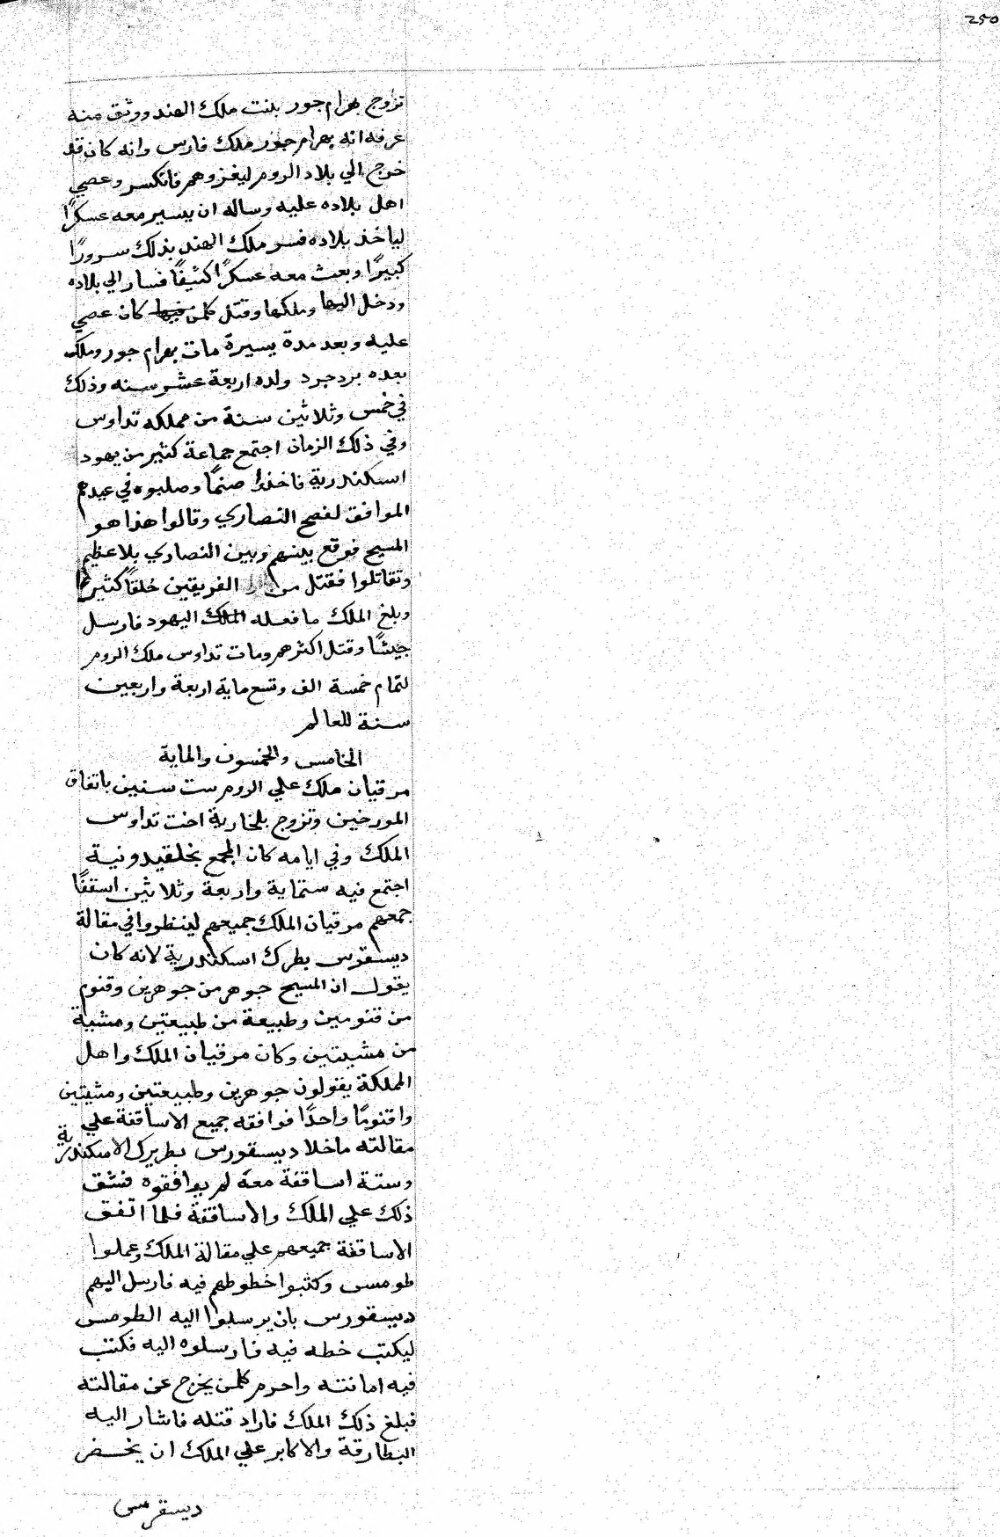 250
تزوج بهرام جور بلنت ملك الهند ووثق منه
عرفه انه بهرام جور ملك فارس وانه كان قد
خرج الي بلاد الروم ليغزوهم فانكسر وعصي
اهل بلاده عليه وساله ان يسير معه عسكرًا
لياخذ بلاده فسر ملك الهند بذلك سرورًا
كبيرًا وبعث معه عسكرًا كثيفًا فسار الي بلاده
ودخل اليها وملكها وقتل كلمن فيها كان عصي
عليه وبعد مدة يسيرة مات بهرام جور وملك
بعده بردجرد ولده اربعة عشر سنه وذلك
في خمس وثلاثين سنة من مملكه تداوس
وفي ذلك الزمان اجتمع جماعة كثير من يهود
اسكندرية فاخذوا صنمًا وصلبوه في عيدهم
الموافق لفصح النصاري وقالوا هذا هو
المسيح فوقع بينهم وبين النصاري بلا عظيم
وتقاتلوا فقتل من الفريقين خلقًا كثيرًا
وبلغ الملك ما فعله الملك اليهود فارسل
جيشًا وقتل اكثرهم ومات تداوس ملك الروم
لتمام خمسة الف وتسع ماية اربعة واربعين
سنة للعالم
الخامس والخمسون والماية
مرقيان ملك علي الروم ست سنين باتفاق
المورخين وتزوج بلخارية اخت تداوس
الملك وفي ايامه كان المجمع بخلقيدونية
اجتمع فيه ستماية واربعة وثلاثين اسقفًا
جمعهم مرقيان الملك جميعهم لينظروا في مقالة
ديسقوس بطرك اسكندرية لانه كان
يقول ان المسيح جوهر من جوهرين وقنوم
من قنومين وطبيعة من طبيعتين ومشية
من مشيتين وكان مرقيان الملك واهل
المملكة يقولون جوهرين وطبيعتين ومشيتين
واقنومًا واحدًا فوافقه جميع الاساقفة علي
مقالته ماخلا ديسقورس بطريرك الاسكندرية
وستة اساقفة معه لم يوافقوه فشق
ذلك علي الملك والاساقفة فلما اتفق
الاساقفة جميعهم علي مقالة الملك وعملوا
طومس وكتبوا خطوطهم فيه فارسل اليهم
ديسقورس بان يرسلوا اليه الطومس
ليكتب خطه فيه فارسلوه اليه فكتب
فيه امانته واحرم كلمن يخرج عن مقالته
فبلغ ذلك الملك فاراد قتله فاشار اليه
البطارقة والاكابر علي الملك ان يحضر
ديسقرس